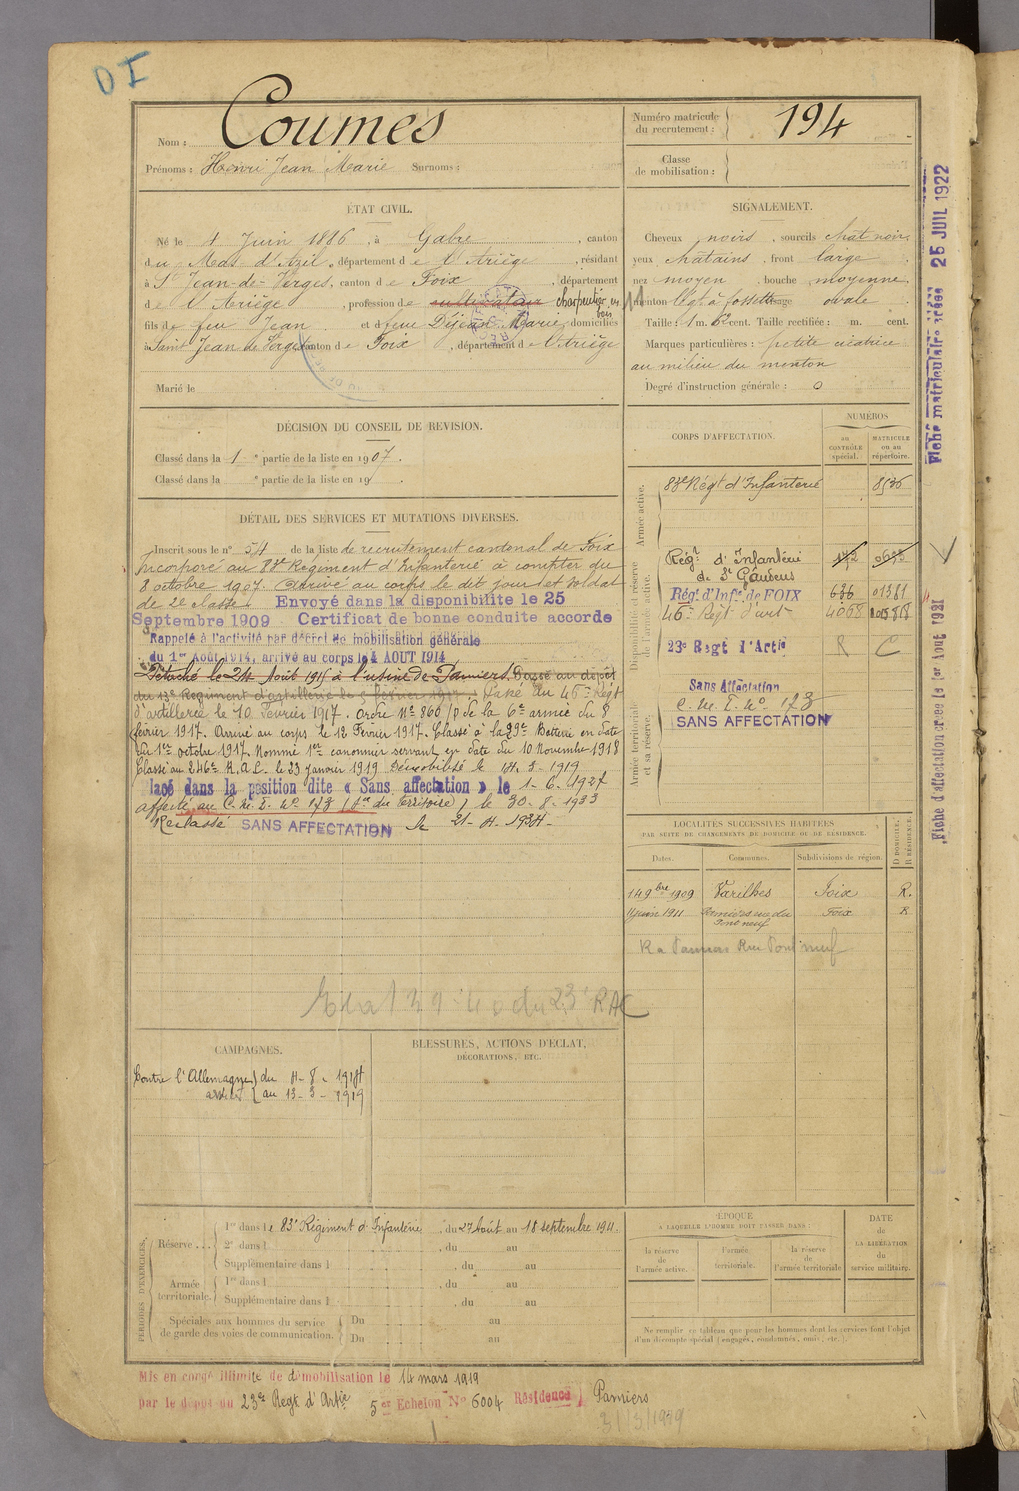 DI
Nom : Coumes
Prénoms : Henri Jean Marie Surnoms :
Numéro matricule du recrutement : 194
Classe de mobilisation :
ÉTAT CIVIL.
Né le 4 Juin 1886, à Gabre, canton
du Mas-d'Azil, département de l'Ariège, résidant
à St Jean-de-Verges, canton de Foix, département
de l'Ariège, profession de cultivateur charpentier en bois
fils de feu Jean et de feu Déjean Marie, domiciliés
à Saint Jean de Verges, canton de Foix, département de l'Ariège
Marié le
SIGNALEMENT.
Cheveux noirs, sourcils chat noir,
yeux châtains, front large
nez moyen, bouche moyenne,
menton à fossette visage ovale
Taille : 1 m. 62 cent. Taille rectifiée : m. cent.
Marques particulières : petite cicatrice
au milieu du menton
Degré d'instruction générale : 0
DÉCISION DU CONSEIL DE REVISION.
Classé dans la 1e partie de la liste en 1907.
Classé dans la e partie de la liste en 19
DÉTAIL DES SERVICES ET MUTATIONS DIVERSES.
Inscrit sous le n° 54 de la liste de recrutement cantonal de Foix
Incorporé au 83e Régiment d'Infanterie à compter du
8 octobre 1907. Arrivé au corps le dit jour et soldat
de 2e classe. Envoyé dans la disponibilité le 25
Septembre 1909 Certificat de bonne conduite accordé
Rappelé à l'activité par décret de mobilisation générale
du 1er Août 1914, arrivé au corps le 4 AOUT 1914
Détaché le 24 Août 1915 à l'usine de Pamiers. Passé au dépôt
du 13e Régiment d'artillerie le février 1917. Passé au 45e Régt
d'artillerie le 10 Février 1917. Ordre N° 860/D de la 6e armée du 8
février 1917. Arrivé au corps le 12 Février 1917. Classé à la 39e Batterie en date
du 1er octobre 1917. Nommé 1er canonnier servant en date du 10 Novembre 1918
Classé au 246e R.A.C. le 23 janvier 1919 Démobilisé le 14-3-1919
lacé dans la position dite « Sans affectation » le 1-6-1927
affecté au C.M.I. N° 173 le 30-8-1933
Reclassé SANS AFFECTATION le 21-4-1934-
CORPS D'AFFECTATION.
NUMÉROS
AU CONTRÔLE spécial.
MATRICULE ou au répertoire.
Armée active.
83e Régt d'Infanterie 8536
Disponibilité et réserve de l'armée active.
Régt d'Infanterie de St Gaudens
Régt d'Infie de FOIX 636 01381
45e Régt d'art 4068
23e Régt d'Artie R C
Armée territoriale et sa réserve.
Sans Affectation
C.M.I. N° 173
SANS AFFECTATION
LOCALITÉS SUCCESSIVES HABITÉES
PAR SUITE DE CHANGEMENTS DE DOMICILE OU DE RÉSIDENCE.
Dates. Communes. Subdivisions de région. D DOMICILE. R RÉSIDENCE.
14 9bre 1909 Varilhes Foix R.
juin 1911 Pamiers rue du Pont neuf Foix R
R a Pamiers Rue Pont neuf
Etat 39-40 du 23e RAC
CAMPAGNES.
Contre l'Allemagne du 4-8-1914
au 13-3-1919
BLESSURES, ACTIONS D'ÉCLAT,
DÉCORATIONS, ETC.
PÉRIODES D'EXERCICES.
Réserve ...
1re dans le 83e Régiment d'Infanterie, du 27 Août au 18 septembre 1911.
2e dans l , du au
Supplémentaire dans l , du au
Armée territoriale.
1re dans l , du au
Supplémentaire dans l , du au
Spéciales aux hommes du service de garde des voies de communication.
Du au
Du au
ÉPOQUE
A LAQUELLE L'HOMME DOIT PASSER DANS :
la réserve de l'armée active.
l'armée territoriale.
la réserve de l'armée territoriale
DATE DE LA LIBÉRATION du service militaire.
Ne remplir ce tableau que pour les hommes dont les services font l'objet
d'un décompte spécial (engagés, condamnés, omis, etc.).
Mis en congé illimité de démobilisation le 14 mars 1919
par le dépôt du 23e Régt d'Artie 5e Echelon N° 6004 Résidence Pamiers
Fiche matriculaire créée 25 JUIL 1922
Fiche d'affectation créée le 1er Août 1931